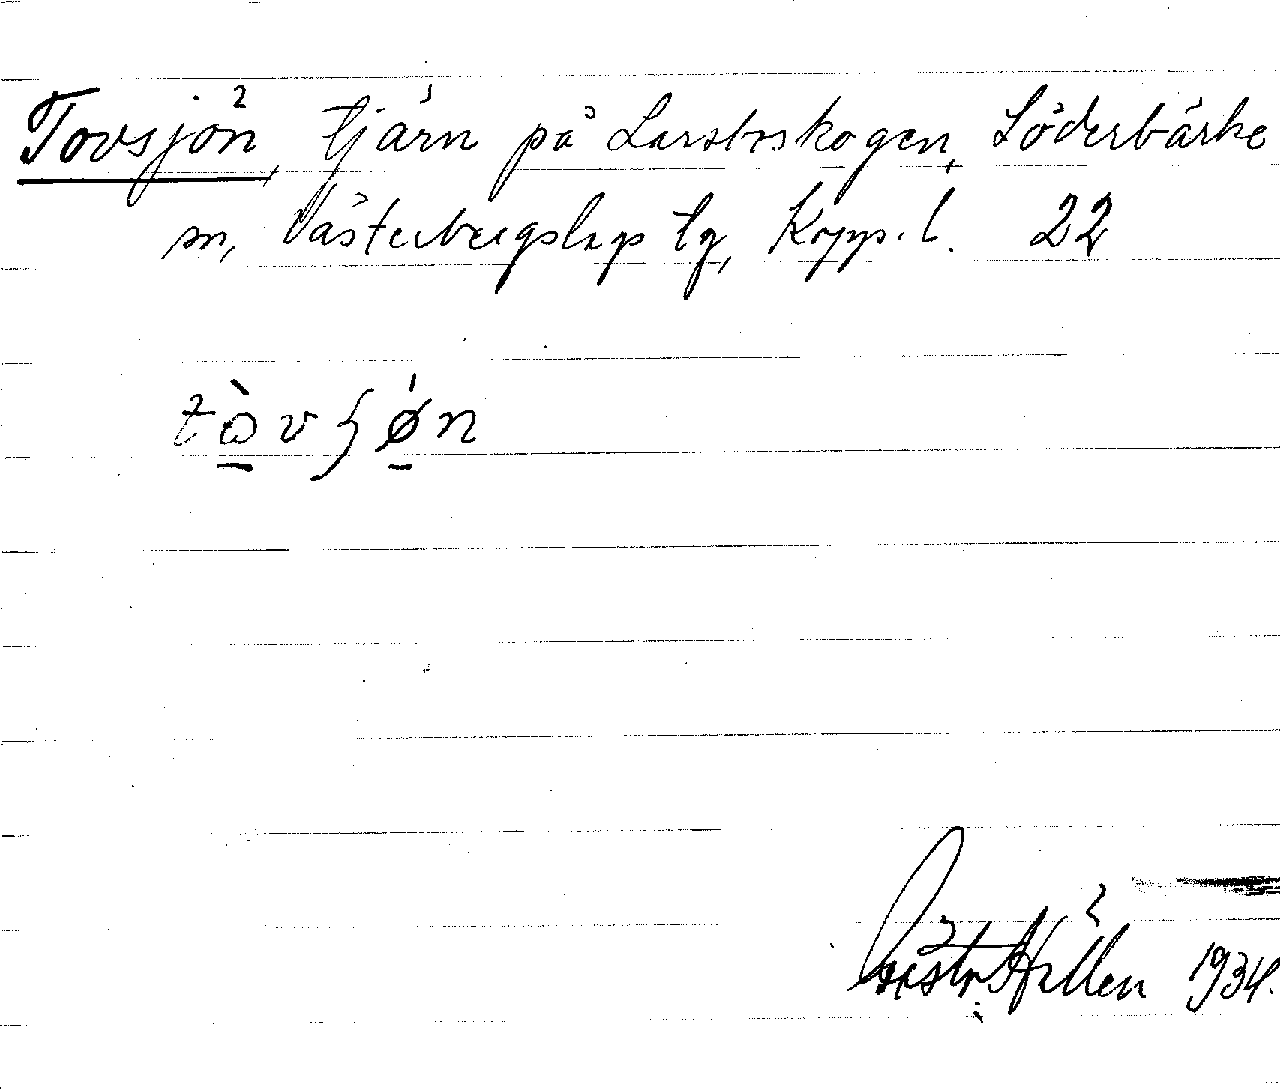 Tovsjön, tjärn på Larsboskogen, Söderbärke
sn, Västerbergslags tg, Kopp. l. 22
tòvʃǿn
Hållén 1934.